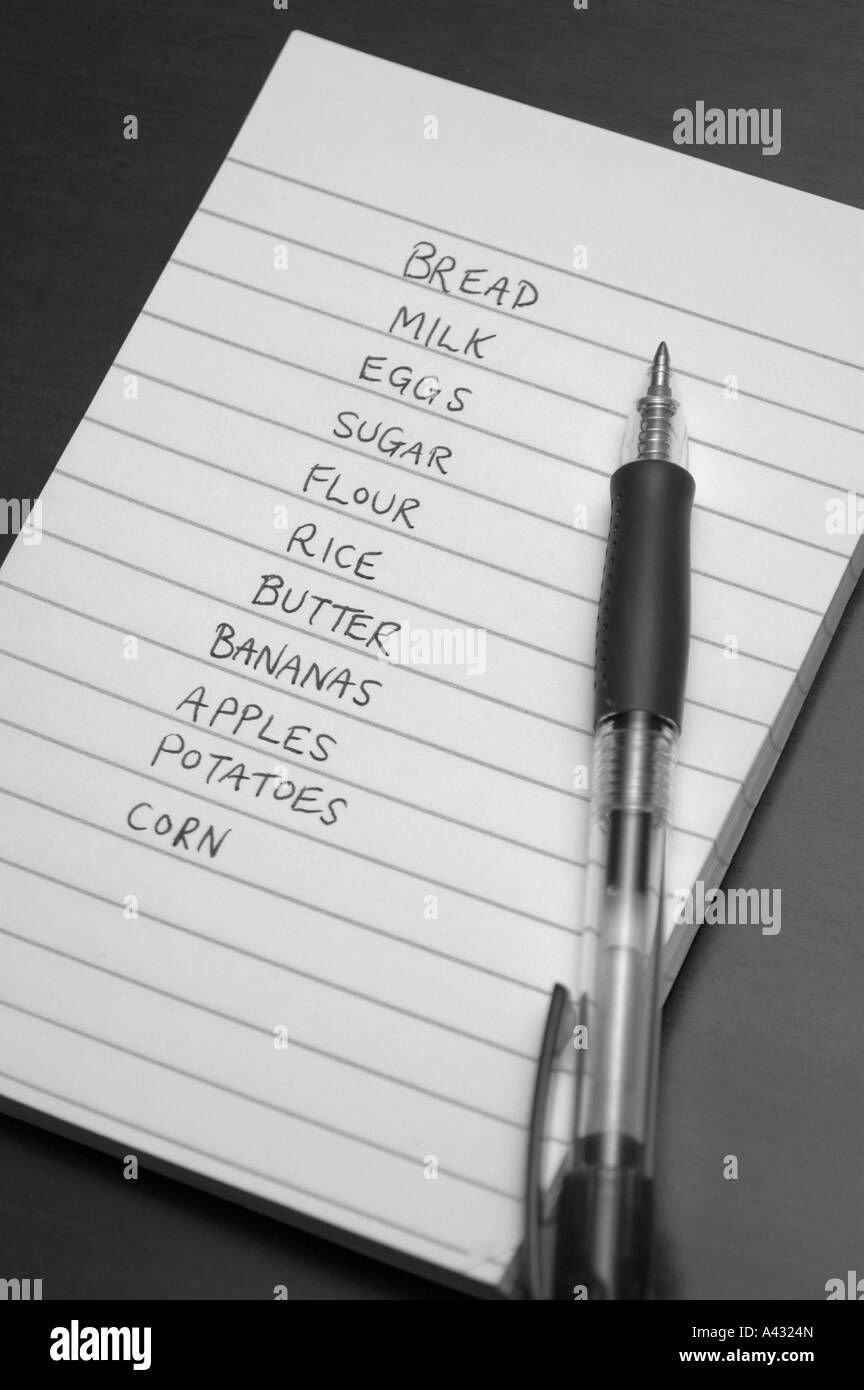 BREAD
MILK
EGGS
SUGAR
FLOUR
RICE
BUTTER
BANANAS
APPLES
POTATOES
CORN
alamy
alamy
Image ID: A4324N
www.alamy.com